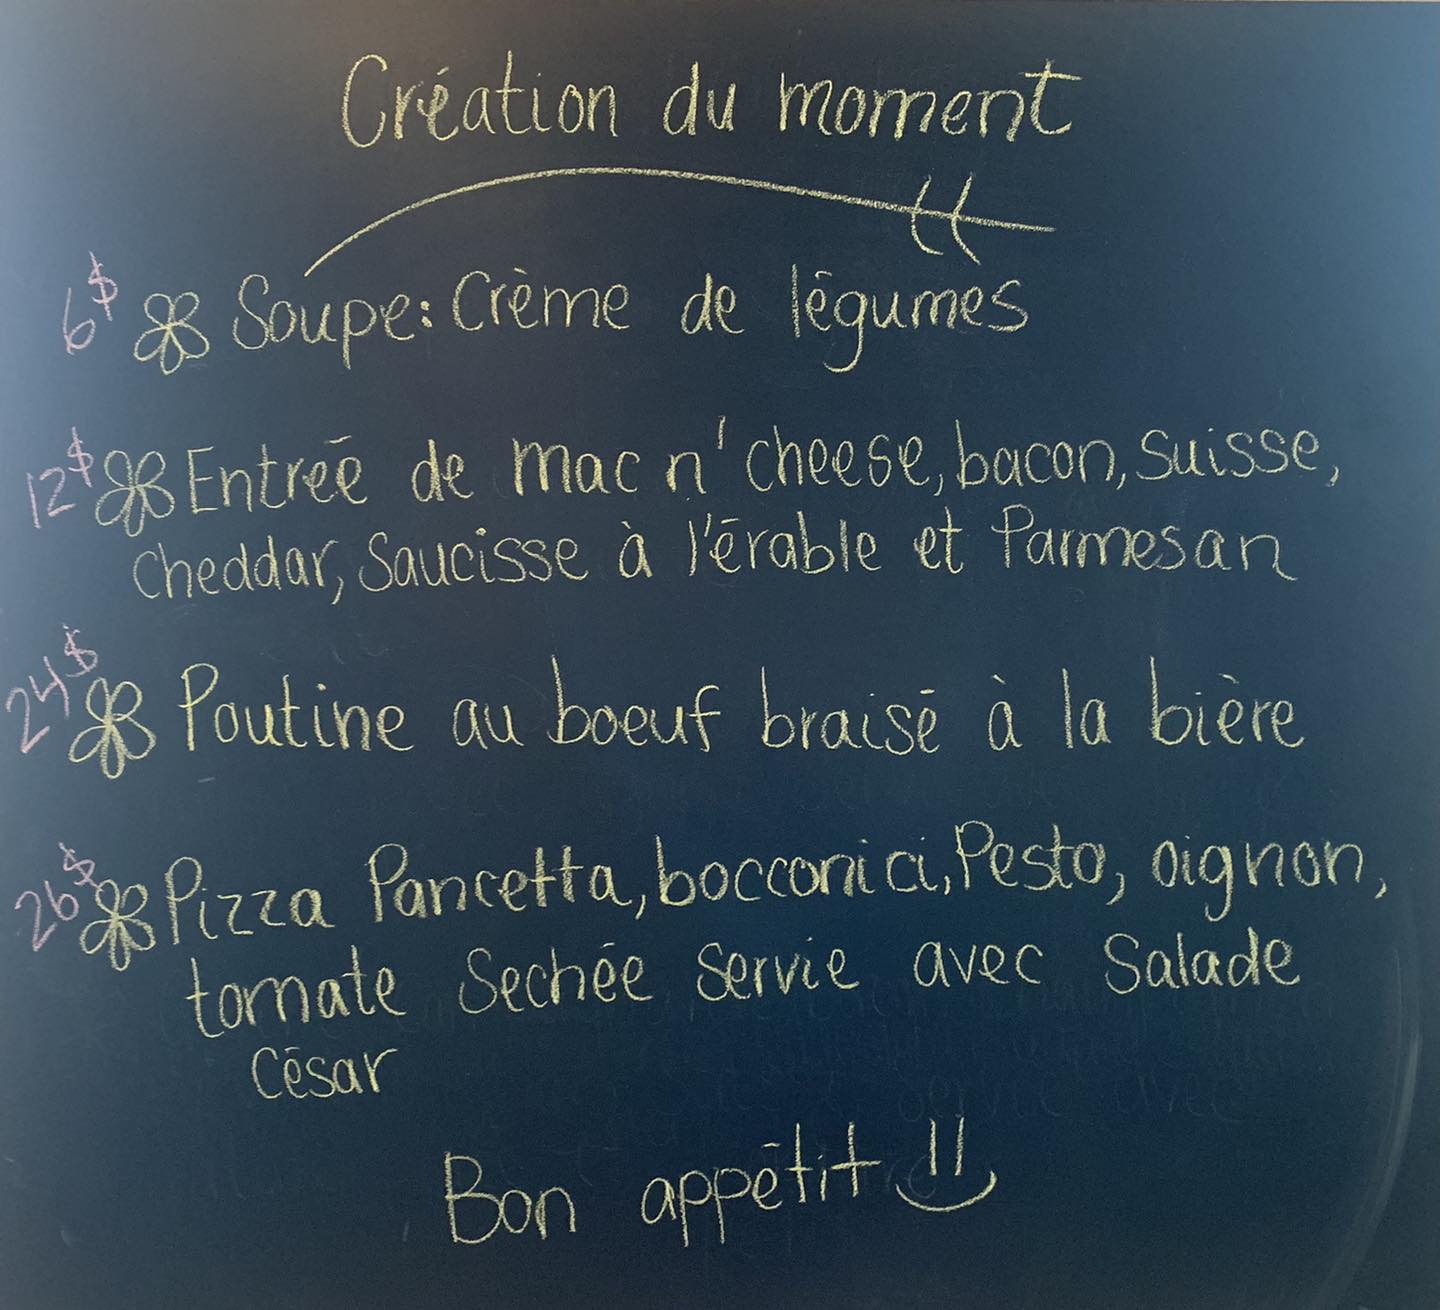 Création du moment
6$ Soupe: Crème de légumes
12$ Entreé de mac n' cheese, bacon, Suisse,
Cheddar, Saucisse à l'érable et Parmesan
24$ Poutine au boeuf braisé à la bière
26$ Pizza Pancetta, bocconici, Pesto, oignon,
tomate Sechée Servie avec Salade
César
Bon appétit